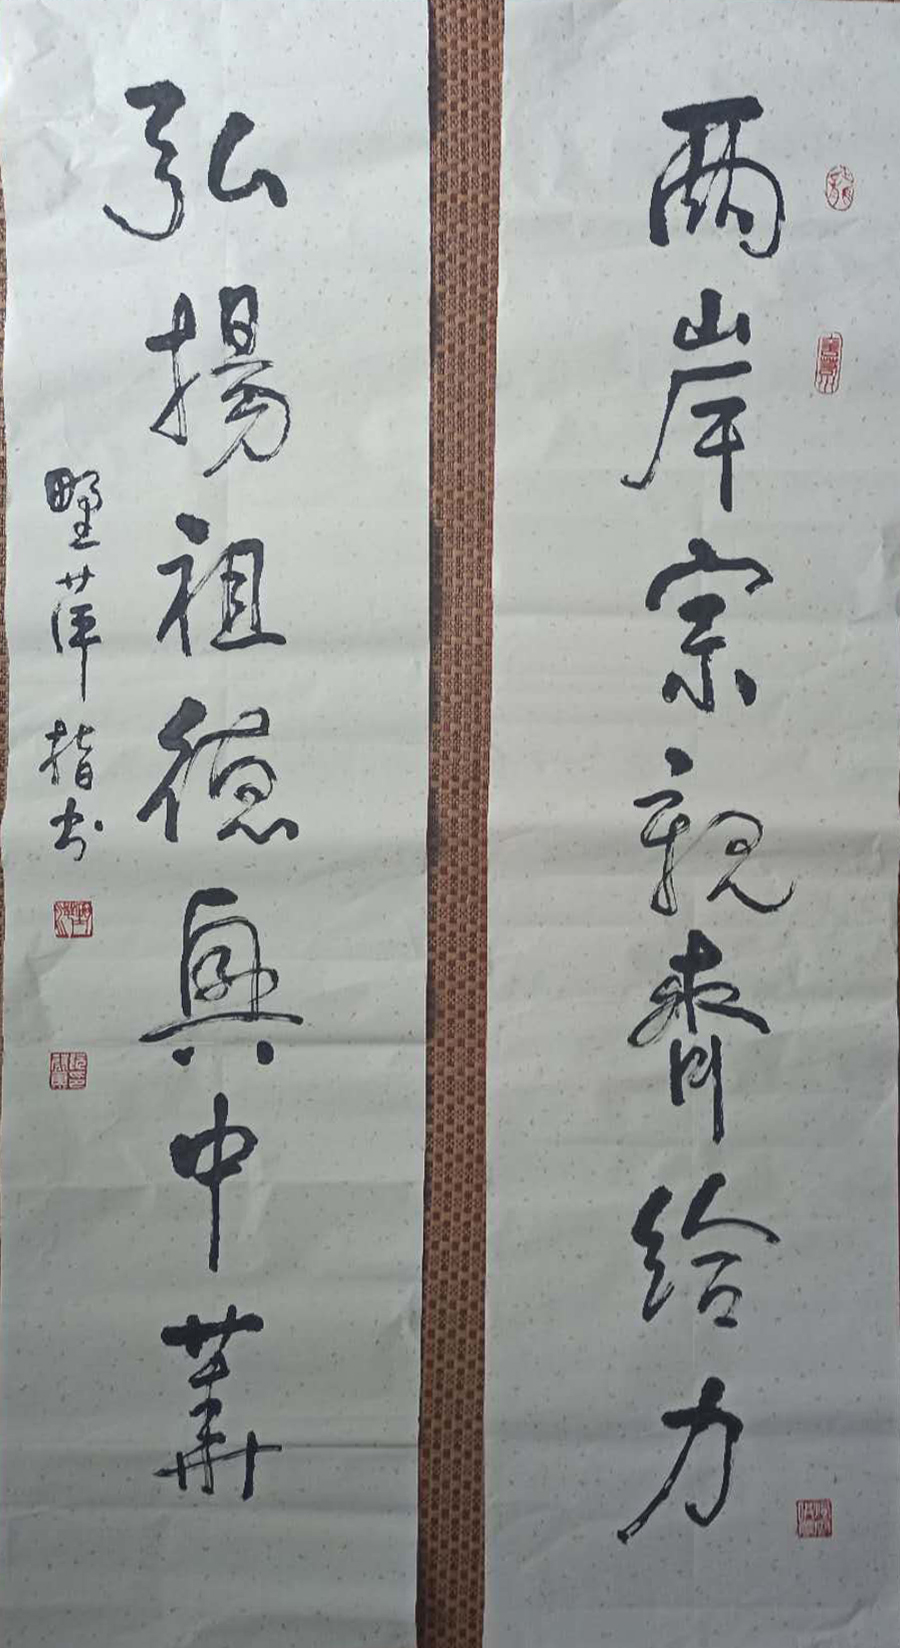 兩岸宗親齊給力
弘揚祖德興中華
野萍指书